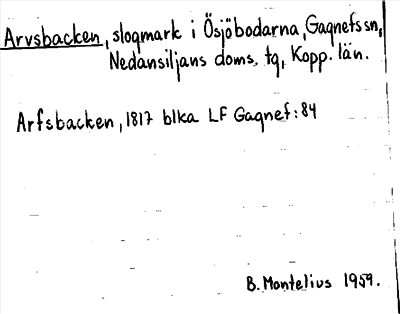 Arvsbacken, slogmark i Ösjöbodarna, Gagnefs sn,
Nedansiljans doms. tg, Kopp. län.
Arfsbacken, 1817 blka LF Gagnef: 84
B. Montelius 1959.